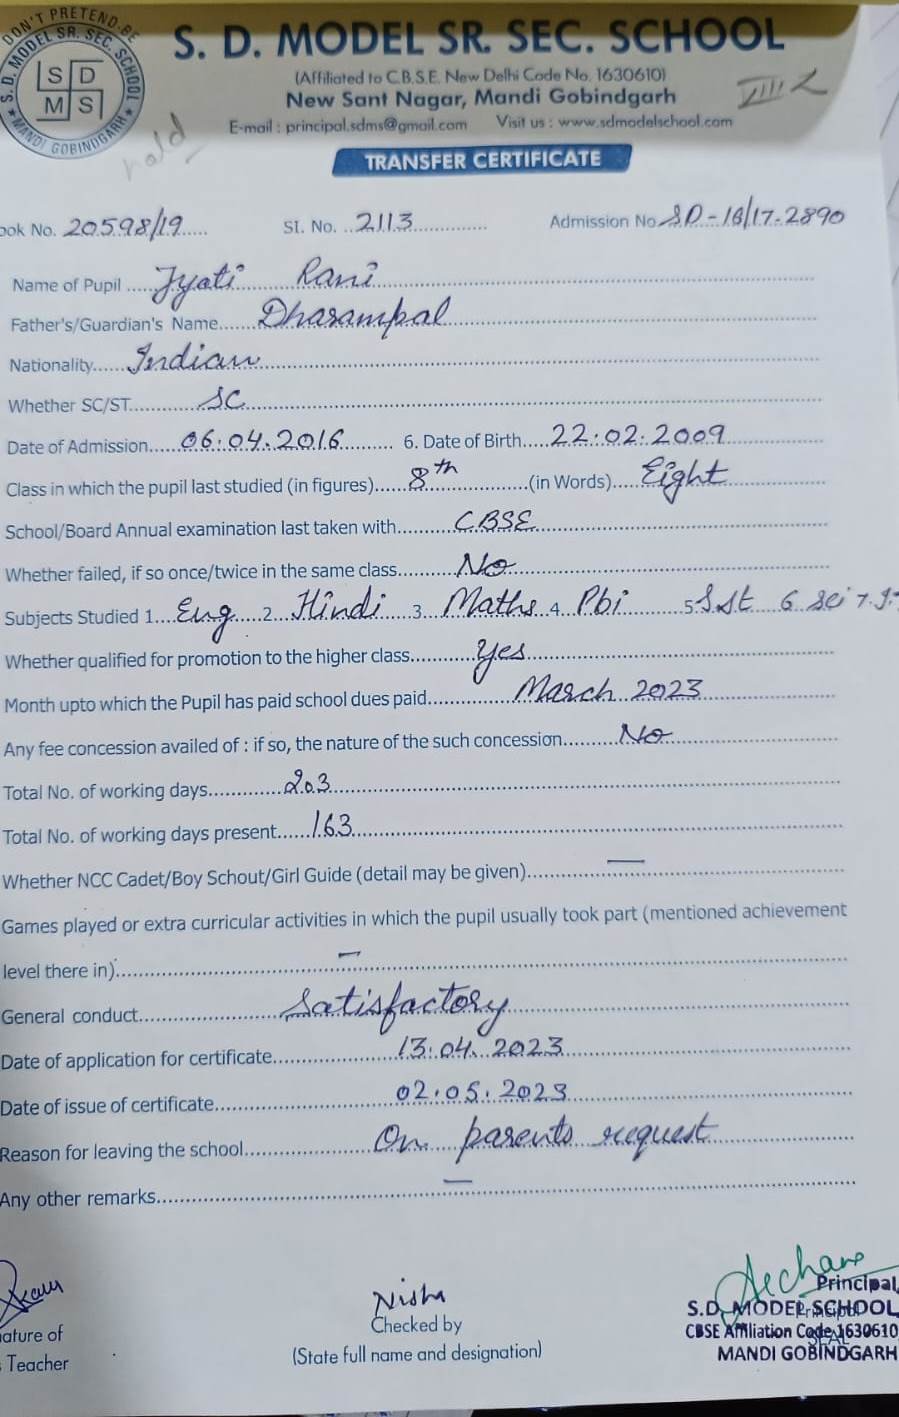 DON'T PRETEND BE
S. D. MODEL SR. SEC. SCHOOL
S D
M S
MANDI GOBINDGARH
S. D. MODEL SR. SEC. SCHOOL
(Affiliated to C.B.S.E. New Delhi Code No. 1630610)
New Sant Nagar, Mandi Gobindgarh
VIII
E-mail : principal.sdms@gmail.com Visit us : www.sdmodelschool.com
TRANSFER CERTIFICATE
ook No. 20598/19 SI. No. 2113 Admission No SD-16/17-2890
Name of Pupil Jyati Rani
Father's/Guardian's Name Dharampal
Nationality Indian
Whether SC/ST SC
Date of Admission 06.04.2016 6. Date of Birth 22.02.2009
Class in which the pupil last studied (in figures) 8th (in Words) Eight
School/Board Annual examination last taken with CBSE
Whether failed, if so once/twice in the same class No
Subjects Studied 1 Eng 2 Hindi 3 Maths 4 Pbi 5 S.St 6 Sci 7
Whether qualified for promotion to the higher class Yes
Month upto which the Pupil has paid school dues paid March 2023
Any fee concession availed of : if so, the nature of the such concession No
Total No. of working days 203
Total No. of working days present 163
Whether NCC Cadet/Boy Schout/Girl Guide (detail may be given) —
Games played or extra curricular activities in which the pupil usually took part (mentioned achievement
level there in) —
General conduct Satisfactory
Date of application for certificate 13.04.2023
Date of issue of certificate 02.05.2023
Reason for leaving the school On parents request
Any other remarks —
Nisha
Principal
Checked by
S.D. MODEL SCHOOL
ature of
CBSE Affiliation Code 1630610
Teacher (State full name and designation) MANDI GOBINDGARH